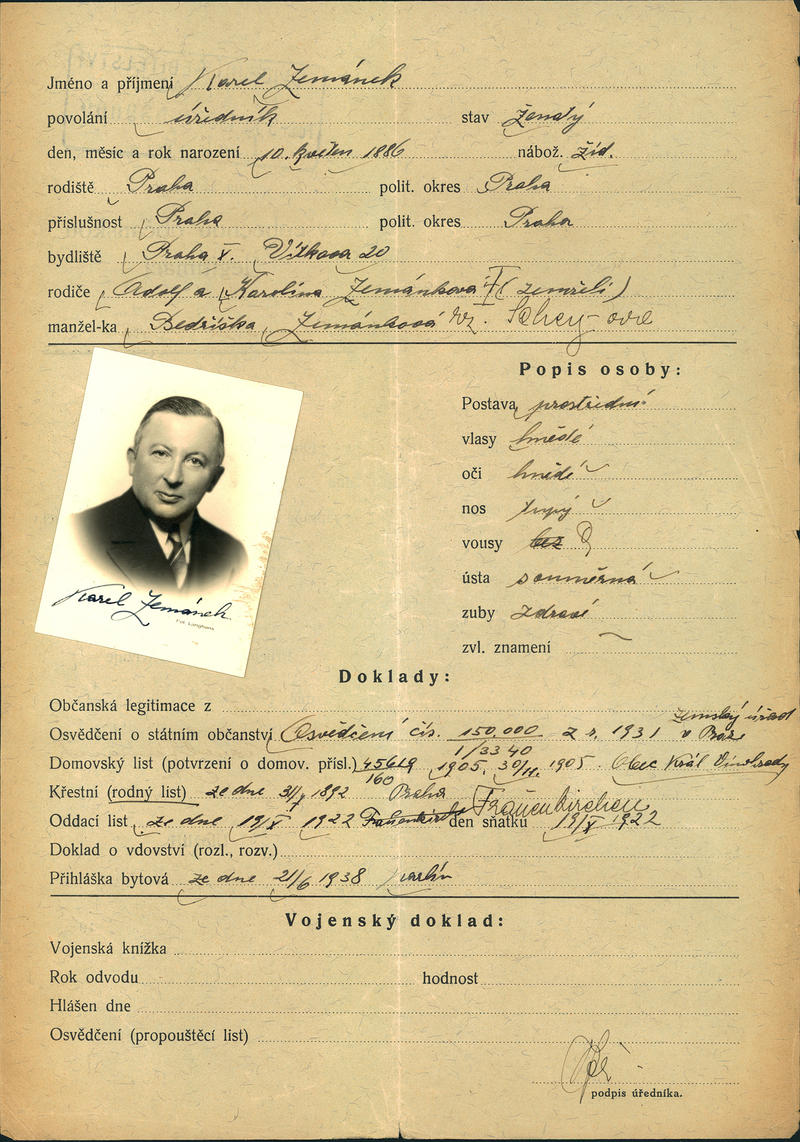 Jméno a příjmení Karel Zemánek
povolání úředník stav ženatý
den, měsíc a rok narození 10. květen 1886 nábož. žid.
rodiště Praha polit. okres Praha
příslušnost Praha polit. okres Praha
bydliště Praha X. Vítkova 20
rodiče Adolf a Karolina Zemánková (zemřelí)
manžel-ka Bedřiška Zemánková roz.
Popis osoby:
Postava prostřední
vlasy hnědé
oči hnědé
nos tupý
vousy bez
ústa souměrná
zuby zdravé
zvl. znamení
Karel Zemánek
Fot. Langhans
Doklady:
Občanská legitimace z
Osvědčení o státním občanství Osvědčení čís. 150.000 z r. 1931 zemský úřad v Praze
1/33 40
Domovský list (potvrzení o domov. přísl.) 45619 1905. 30/11. 1905. Obec Král Vinohrady
160
Křestní (rodný list) ze dne 1892 Praha
Oddací list ze dne 19/X 1922 Frauenkirchen den sňatku 19/X 1922
Doklad o vdovství (rozl., rozv.)
Přihláška bytová ze dne 21/6 1938 Karlín
Vojenský doklad:
Vojenská knížka
Rok odvodu hodnost
Hlášen dne
Osvědčení (propouštěcí list)
podpis úředníka.